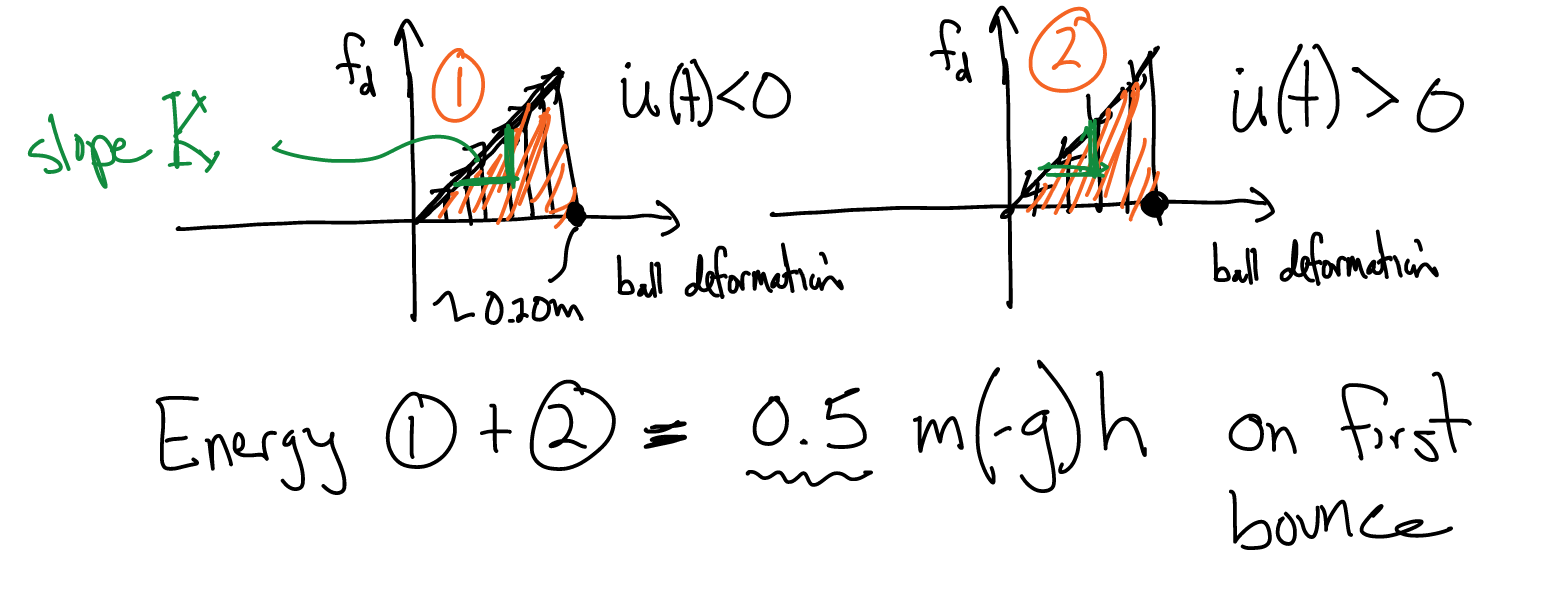 f_d ① u̇(t)<0
slope K
~0.20m
ball deformation
f_d ② u̇(t)>0
ball deformation
Energy ① + ② = 0.5 m(-g)h on first
bounce